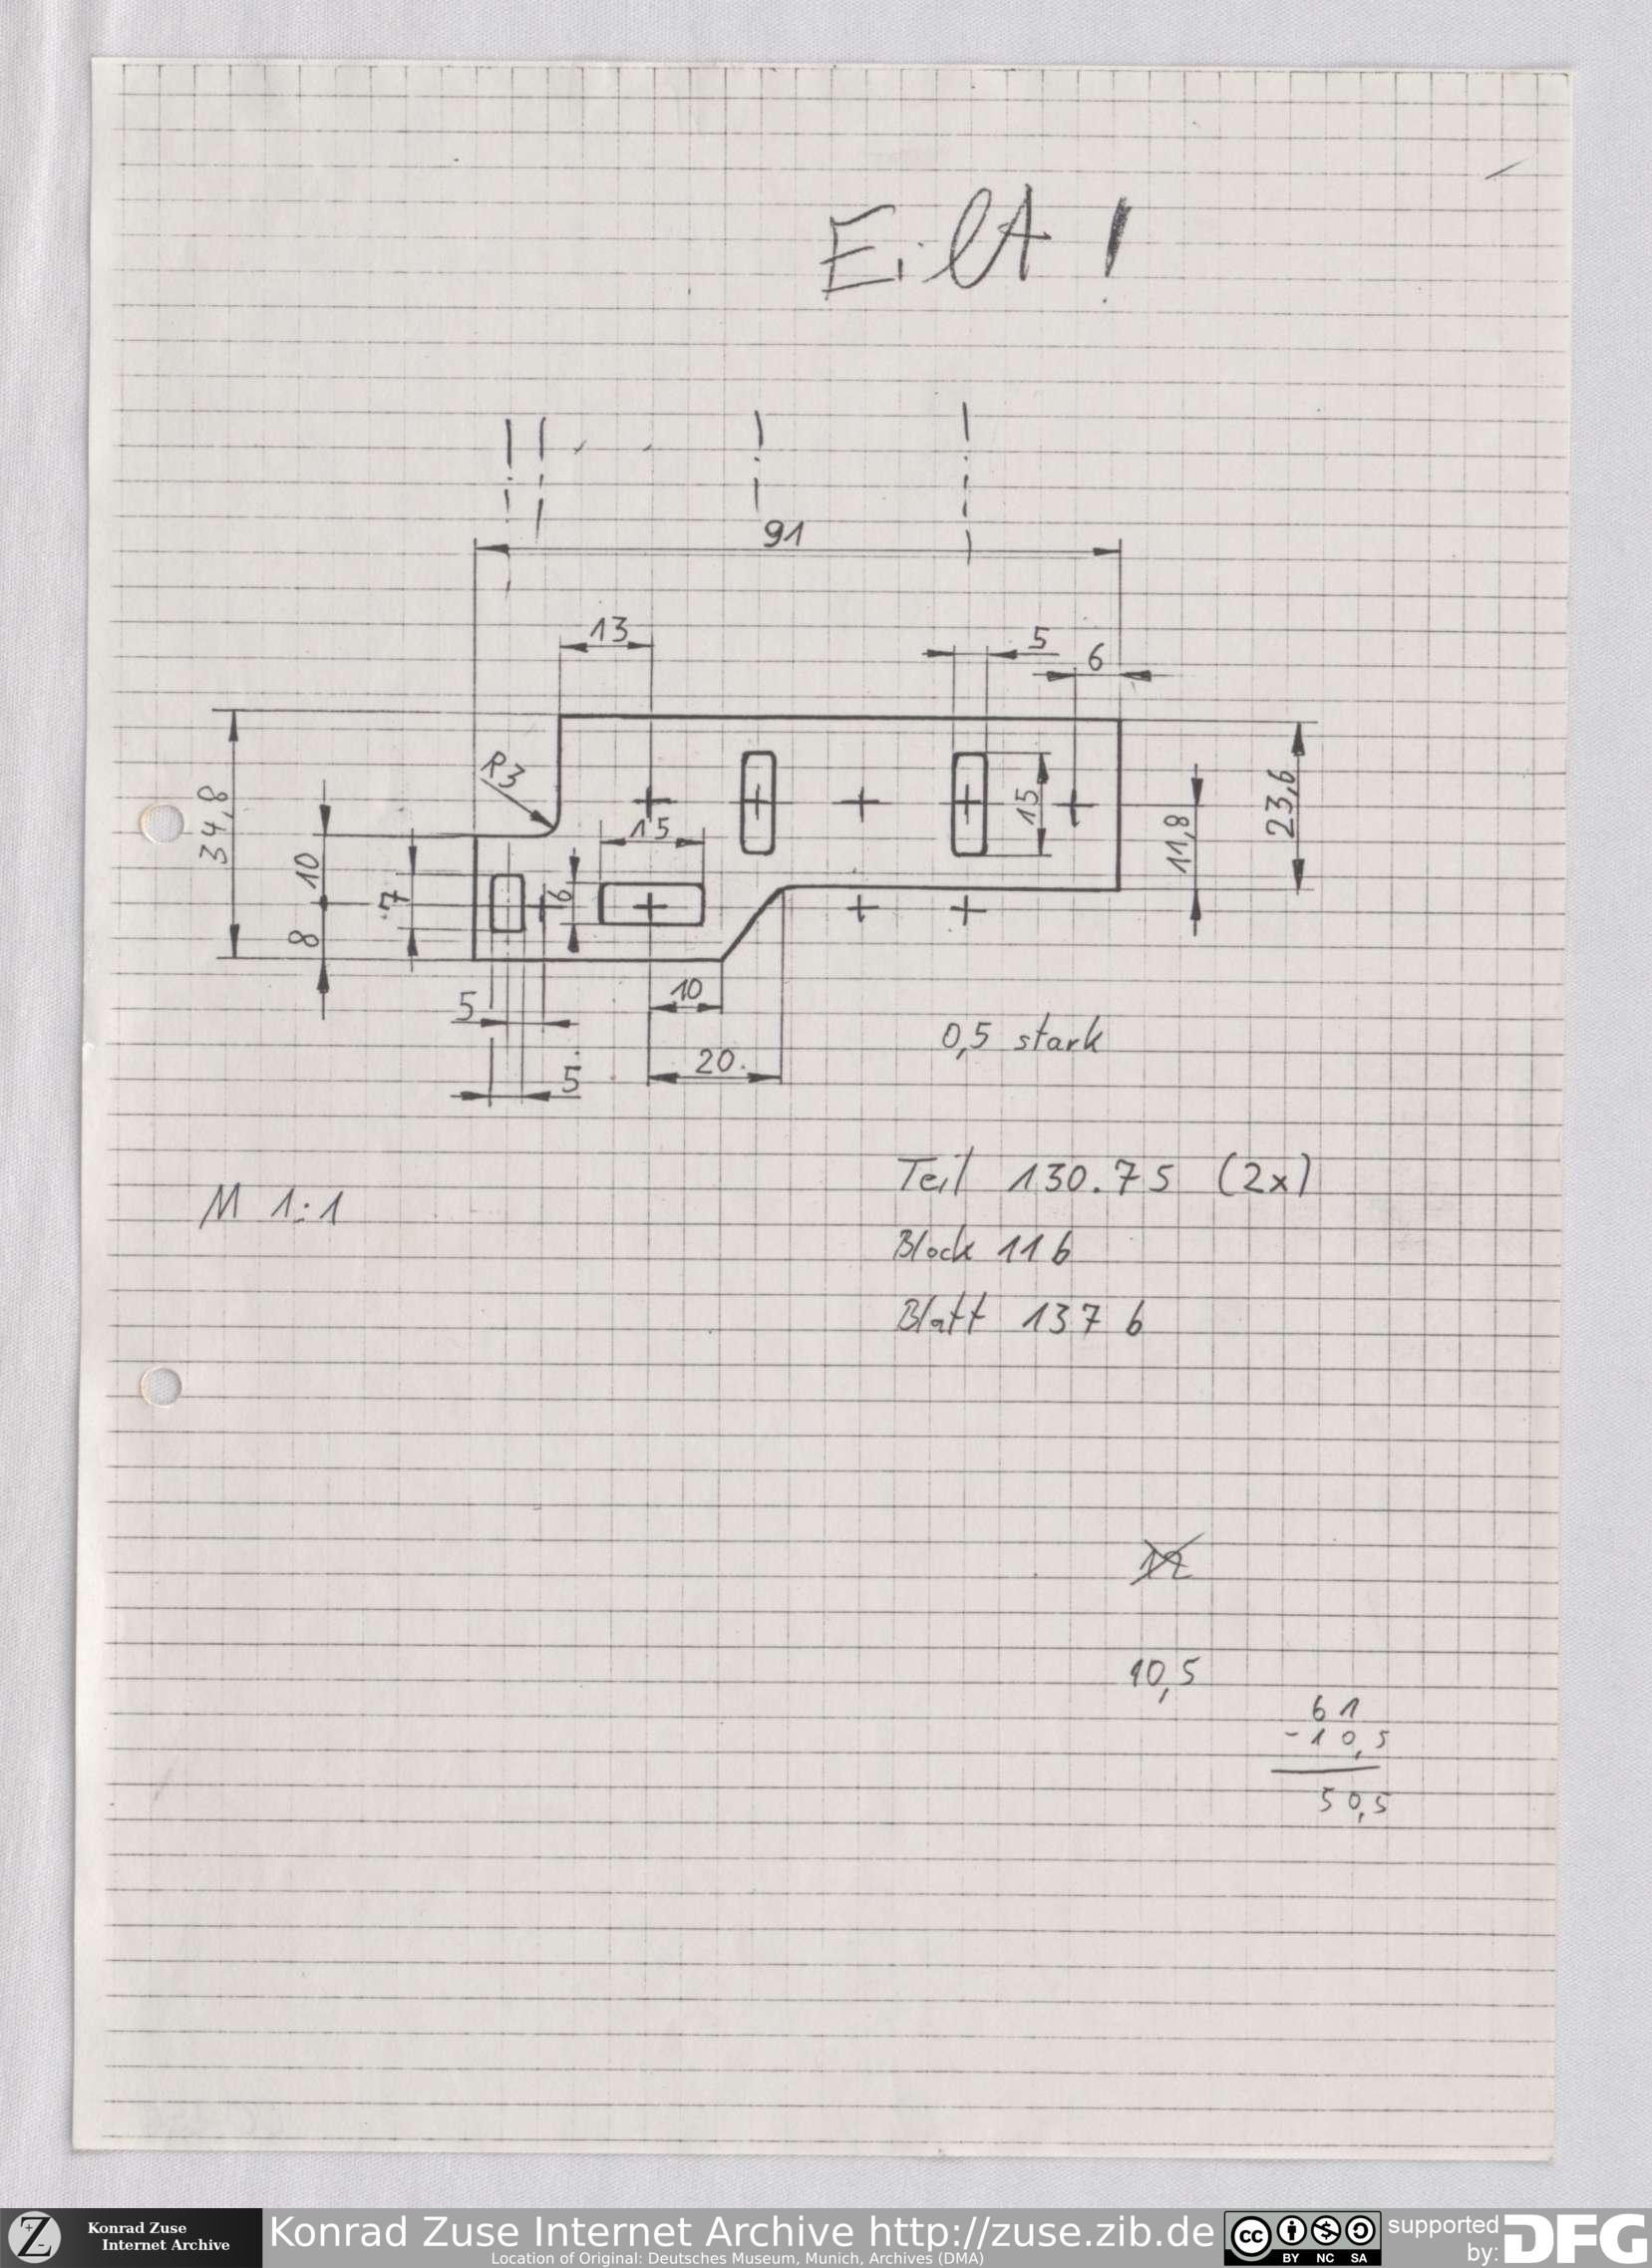 Eilt !
91
13
5
6
R3
15
15
34,8
10
7
6
8
11,8
23,6
5
10
20
5
0,5 stark
Teil 130.75 (2x)
M 1:1
Block 116
Blatt 137 6
12
10,5
61
-10,5
50,5
Konrad Zuse
Internet Archive
Konrad Zuse Internet Archive http://zuse.zib.de
Location of Original: Deutsches Museum, Munich, Archives (DMA)
cc
BY NC SA
supported
by: DFG